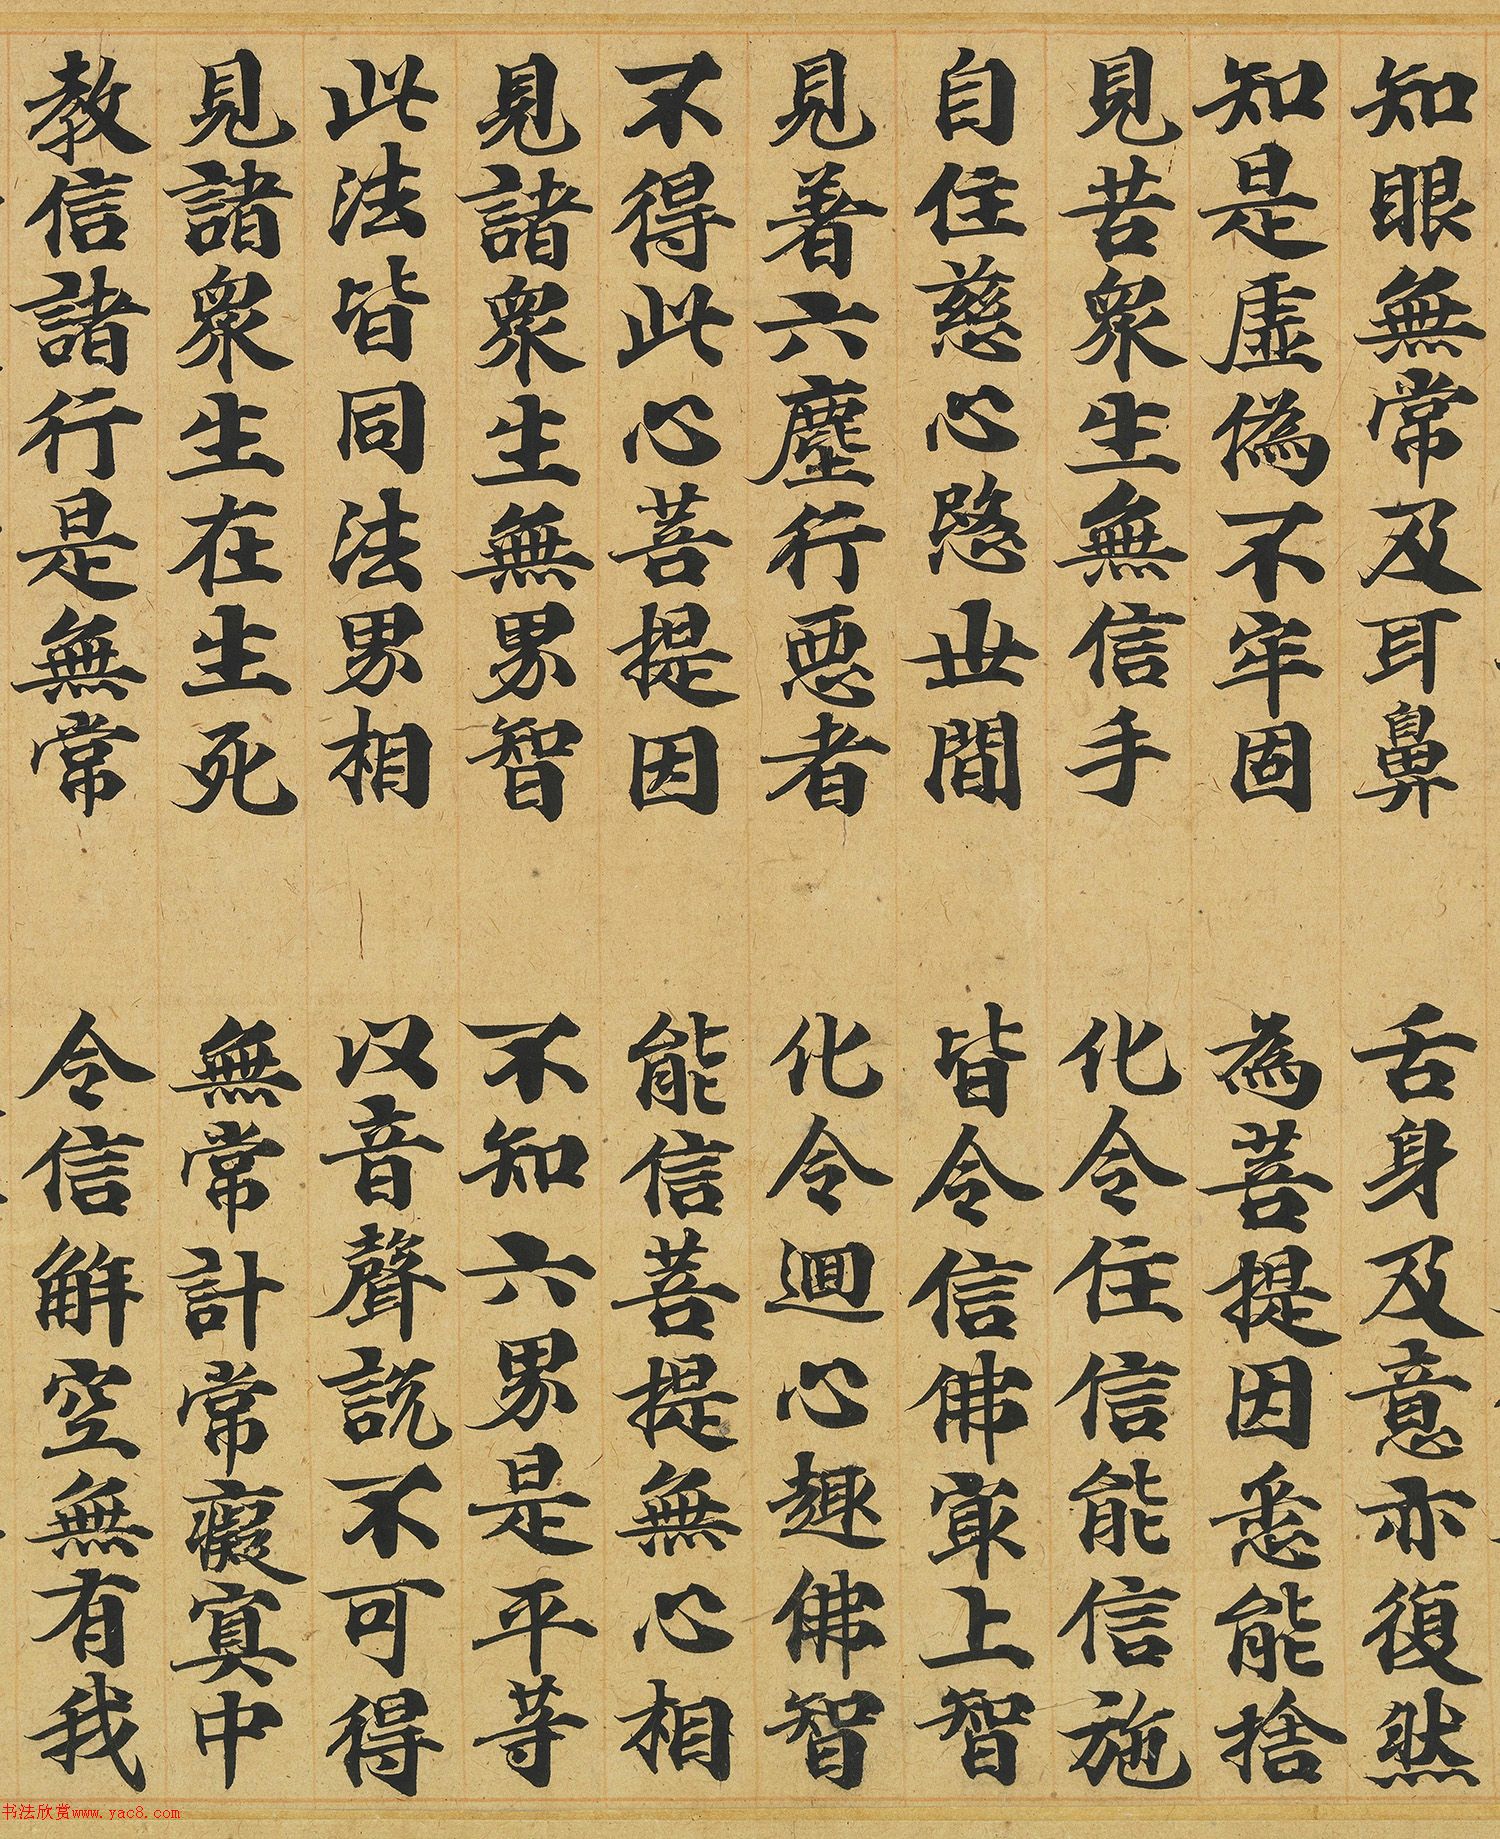 知眼無常及耳鼻　舌身及意亦復然
知是虛偽不牢固　為菩提因悉能捨
見苦眾生無信手　化令住信能信施
自住慈心愍世間　皆令信佛㝡上智
見著六塵行惡者　化令迴心趣佛智
不得此心菩提因　能信菩提無心相
見諸眾生無界智　不知六界是平等
此法皆同法界相　以音聲說不可得
見諸眾生在生死　無常計常癡寘中
教信諸行是無常　令信解空無有我
书法欣赏www.yac8.com